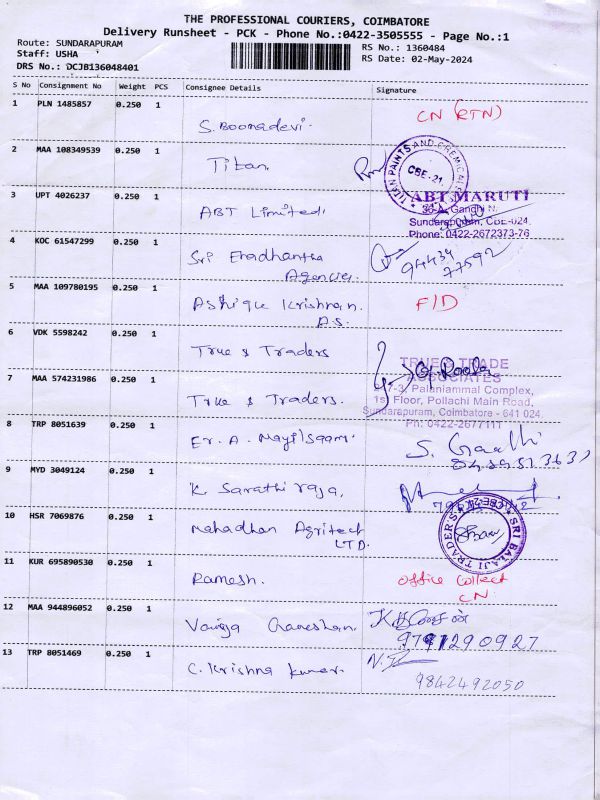 THE PROFESSIONAL COURIERS, COIMBATORE
Delivery Runsheet - PCK - Phone No.:0422-3505555 - Page No.:1
Route: SUNDARAPURAM
Staff: USHA
DRS No.: DCJB136048401
RS No.: 1360484
RS Date: 02-May-2024
S No Consignment No Weight PCS Consignee Details Signature
1 PLN 1485857 0.250 1 S. Boomadevi. CN (RTN)
2 MAA 108349539 0.250 1 Titan.
TITAN PAINTS AND CHEMICAL
CBE-21.
3 UPT 4026237 0.250 1 ABT Limited.
ABT MARUTI
Sundarapuram, CBE-024.
Phone: 0422-2672373-76
4 KOC 61547299 0.250 1 Sri
Agencies
94434
77592
5 MAA 109780195 0.250 1 Ashique Krishnan. F/D
A.S.
6 VDK 5598242 0.250 1 True & Traders
TRUE & TRADE
ASSOCIATES
7 MAA 574231986 0.250 1 True & Traders.
Palaniammal Complex,
1st Floor, Pollachi Main Road,
Sundarapuram, Coimbatore - 641 024.
Ph: 0422-2677111
8 TRP 8051639 0.250 1 Er. A. Mayilsaami
9 MYD 3049124 0.250 1 K. Sarathi raja,
10 HSR 7069876 0.250 1 Mahadhan Agritech
LTD.
SRI BALAJI TRADERS
11 KUR 695890530 0.250 1 Ramesh. Office Collect
CN
12 MAA 944896052 0.250 1 Ganeshan
9791290927
13 TRP 8051469 0.250 1 C. Krishna kumar.
9842492050